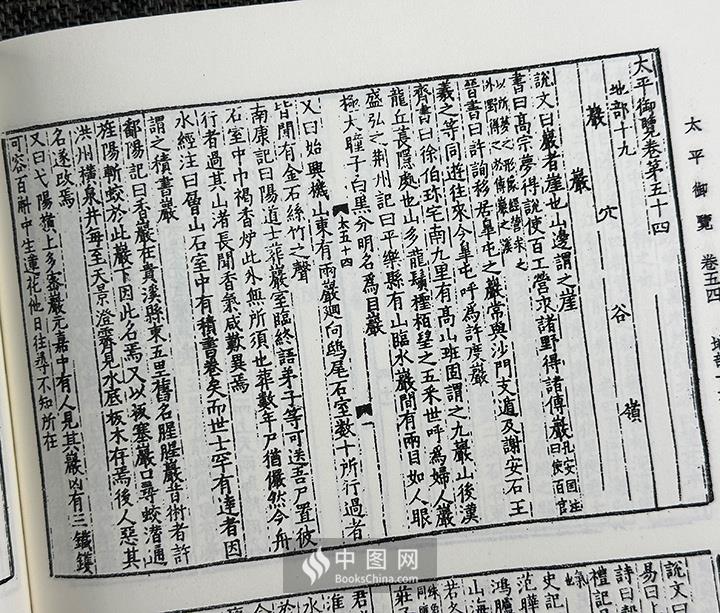 太平御覽卷第五十四
地部十九
巖 穴 谷 嶺
巖
說文曰巖者崖也山邊謂之崖
書曰高宗夢得說使百工營求諸野得諸傅巖孔安國注曰使百官
以所夢之形象經營求之
外野得之於傅巖之溪
晉書曰許詢移居臯屯之巖常與沙門支遁及謝安石王
羲之等同遊往來今臯屯呼爲許度巖
齊書曰徐伯珎宅南九里有髙山班固謂之九巖山後漢
龍丘萇隱處也山多龍鬚檉栢望之五采世呼爲婦人巖
盛弘之荆州記曰平樂縣有山臨水巖間有兩目如人眼
極大瞳子白黑分明名爲目巖
太五十四
一
又曰始興機山東有兩巖廻向鴟尾石室數十所行過者
皆聞有金石絲竹之聲
南康記曰陽道士葬巖室臨終語弟子等可送吾尸置彼
石室中巾褐香炉此外無所須也葬數年尸猶儼然今舟
行者過其山渚長聞香氣咸歎異焉
水經注曰層山石室中有積書卷矣而世士罕有逹者因
謂之積書巖
鄱陽記曰香巖在貴溪縣東五里舊名腥腥巖昔術者許
旌陽斬蛟於此巖下因此名焉又以板塞巖口尋蛟潜通
洪州橫泉井每至天景澄霽見水底板木存焉後人惡其
名遂改焉
又曰弋陽嶺上多宻巖元嘉中有人見其巖凶有三鐵鑊
可容百斛中生蓮花他日往尋不知所在
太平御覽 卷五四
說文
易曰
詩曰
禮記
史記
范曄
鴻臚
山海
若冬
莊子
君
淮
水
於
中图网
BooksChina.com